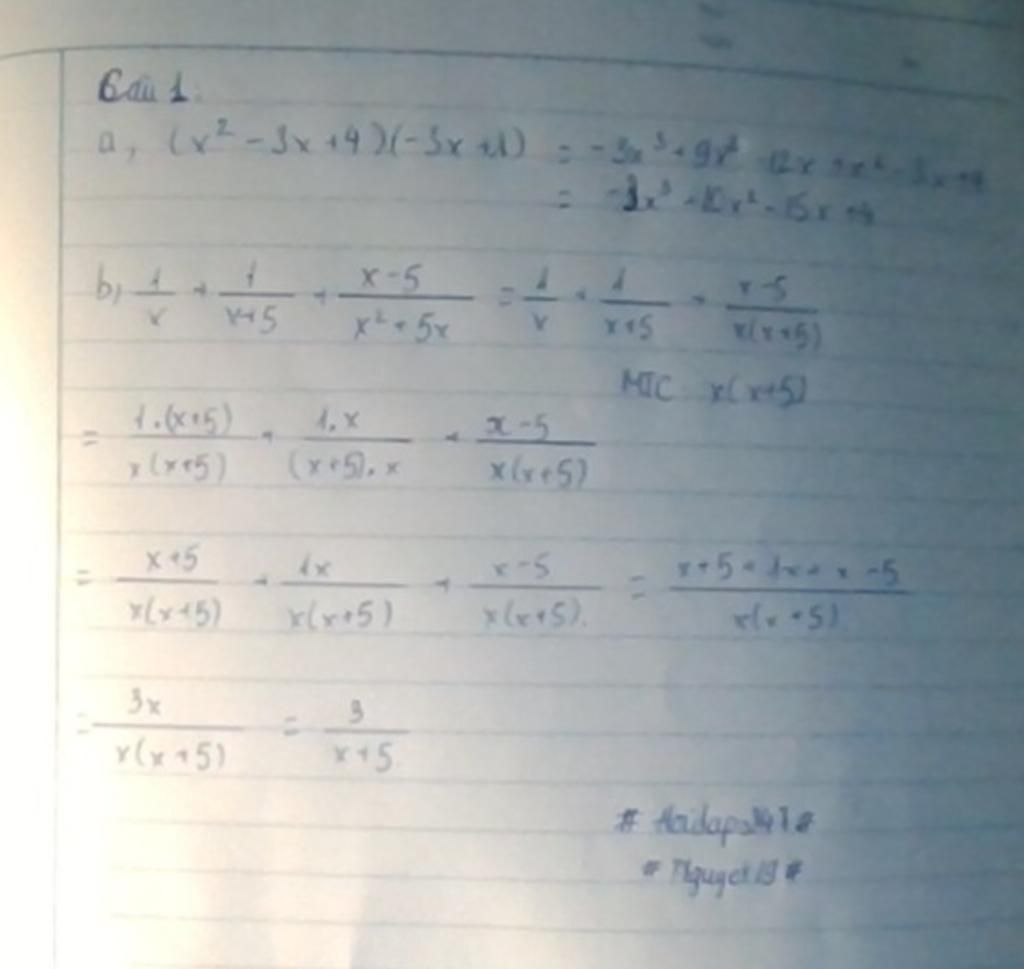 Câu 1:
a, (x² - 3x + 4)(-3x + 1) = -3x³ + 9x² - 12x + x² - 3x + 4
= -3x³ + 10x² - 15x + 4
b, 1/x + 1/(x+5) + (x-5)/(x² + 5x) = 1/x + 1/(x+5) + (x-5)/(x(x+5))
MTC x(x+5)
= (1.(x+5))/(x(x+5)) + (1.x)/((x+5).x) + (x-5)/(x(x+5))
= (x+5)/(x(x+5)) + 1x/(x(x+5)) + (x-5)/(x(x+5)). = (x+5+1x+x-5)/(x(x+5))
= 3x/(x(x+5)) = 3/(x+5)
# Hoidap247 #
# Nguyet19 #